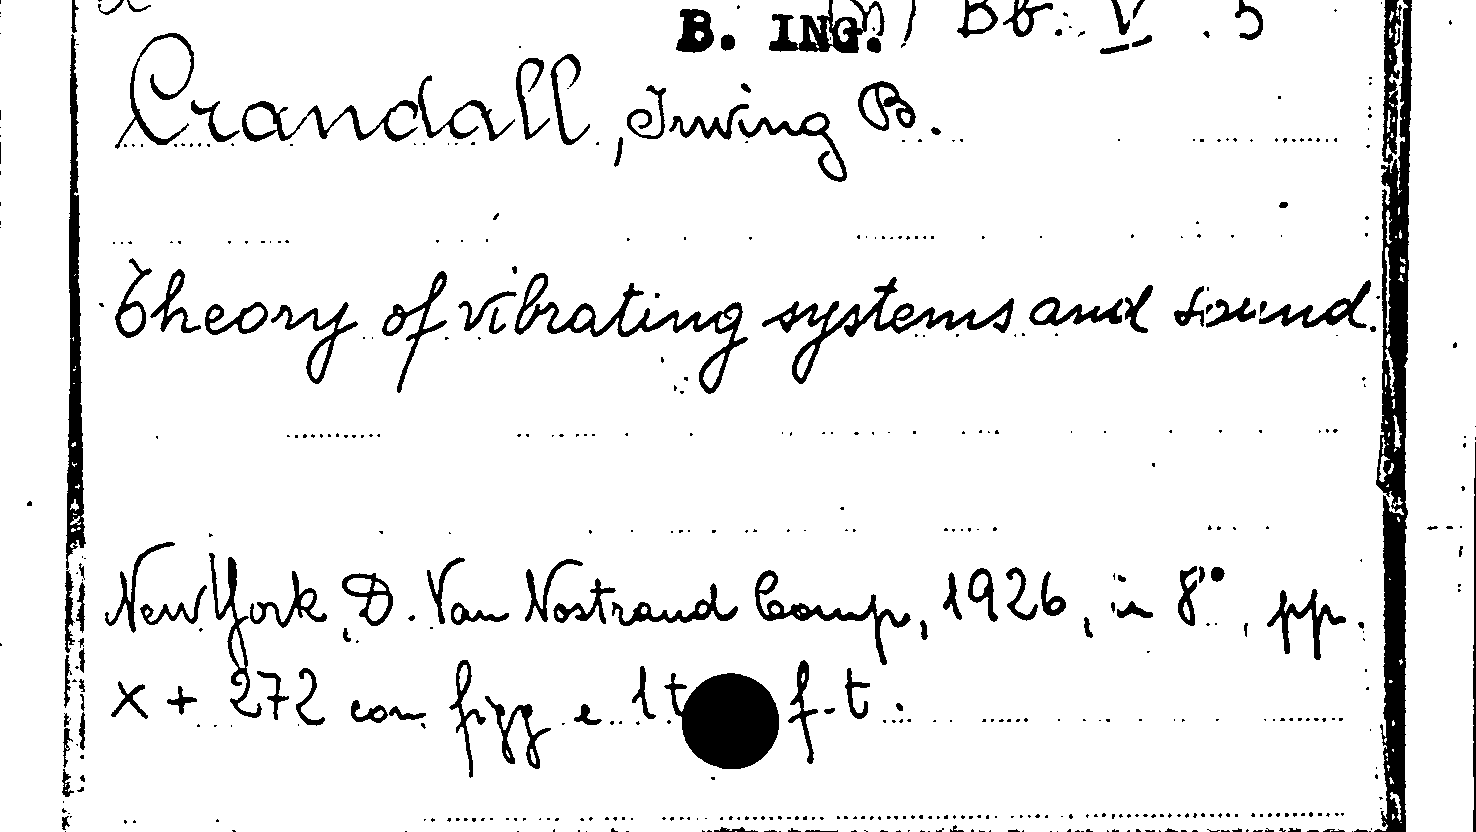 B. ING. Bb. V. 5
Crandall, Irving B.
Theory of vibrating systems and sound.
New York, D. Van Nostrand Comp, 1926, in 8°, pp.
x + 272 con figg e 1 t f.t.